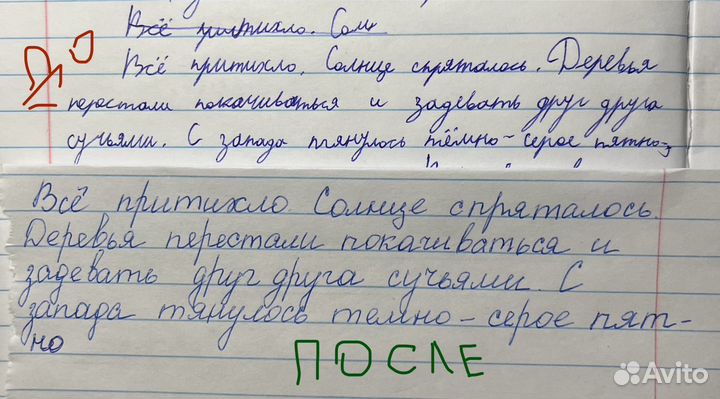 Всё притихло. Солн
Всё притихло. Солнце спряталось. Деревья
перестали покачиваться и задевать друг друга
сучьями. С запада тянулось тёмно-серое пятно
Всё притихло. Солнце спряталось.
Деревья перестали покачиваться и
задевать друг друга сучьями. С
запада тянулось темно-серое пят-
но
ПОСЛЕ
Avito